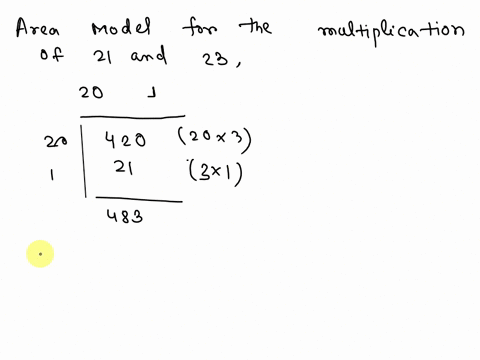 Area Model for the multiplication
of 21 and 23,
20 1
20 420 (20×3)
1 21 (3×1)
483